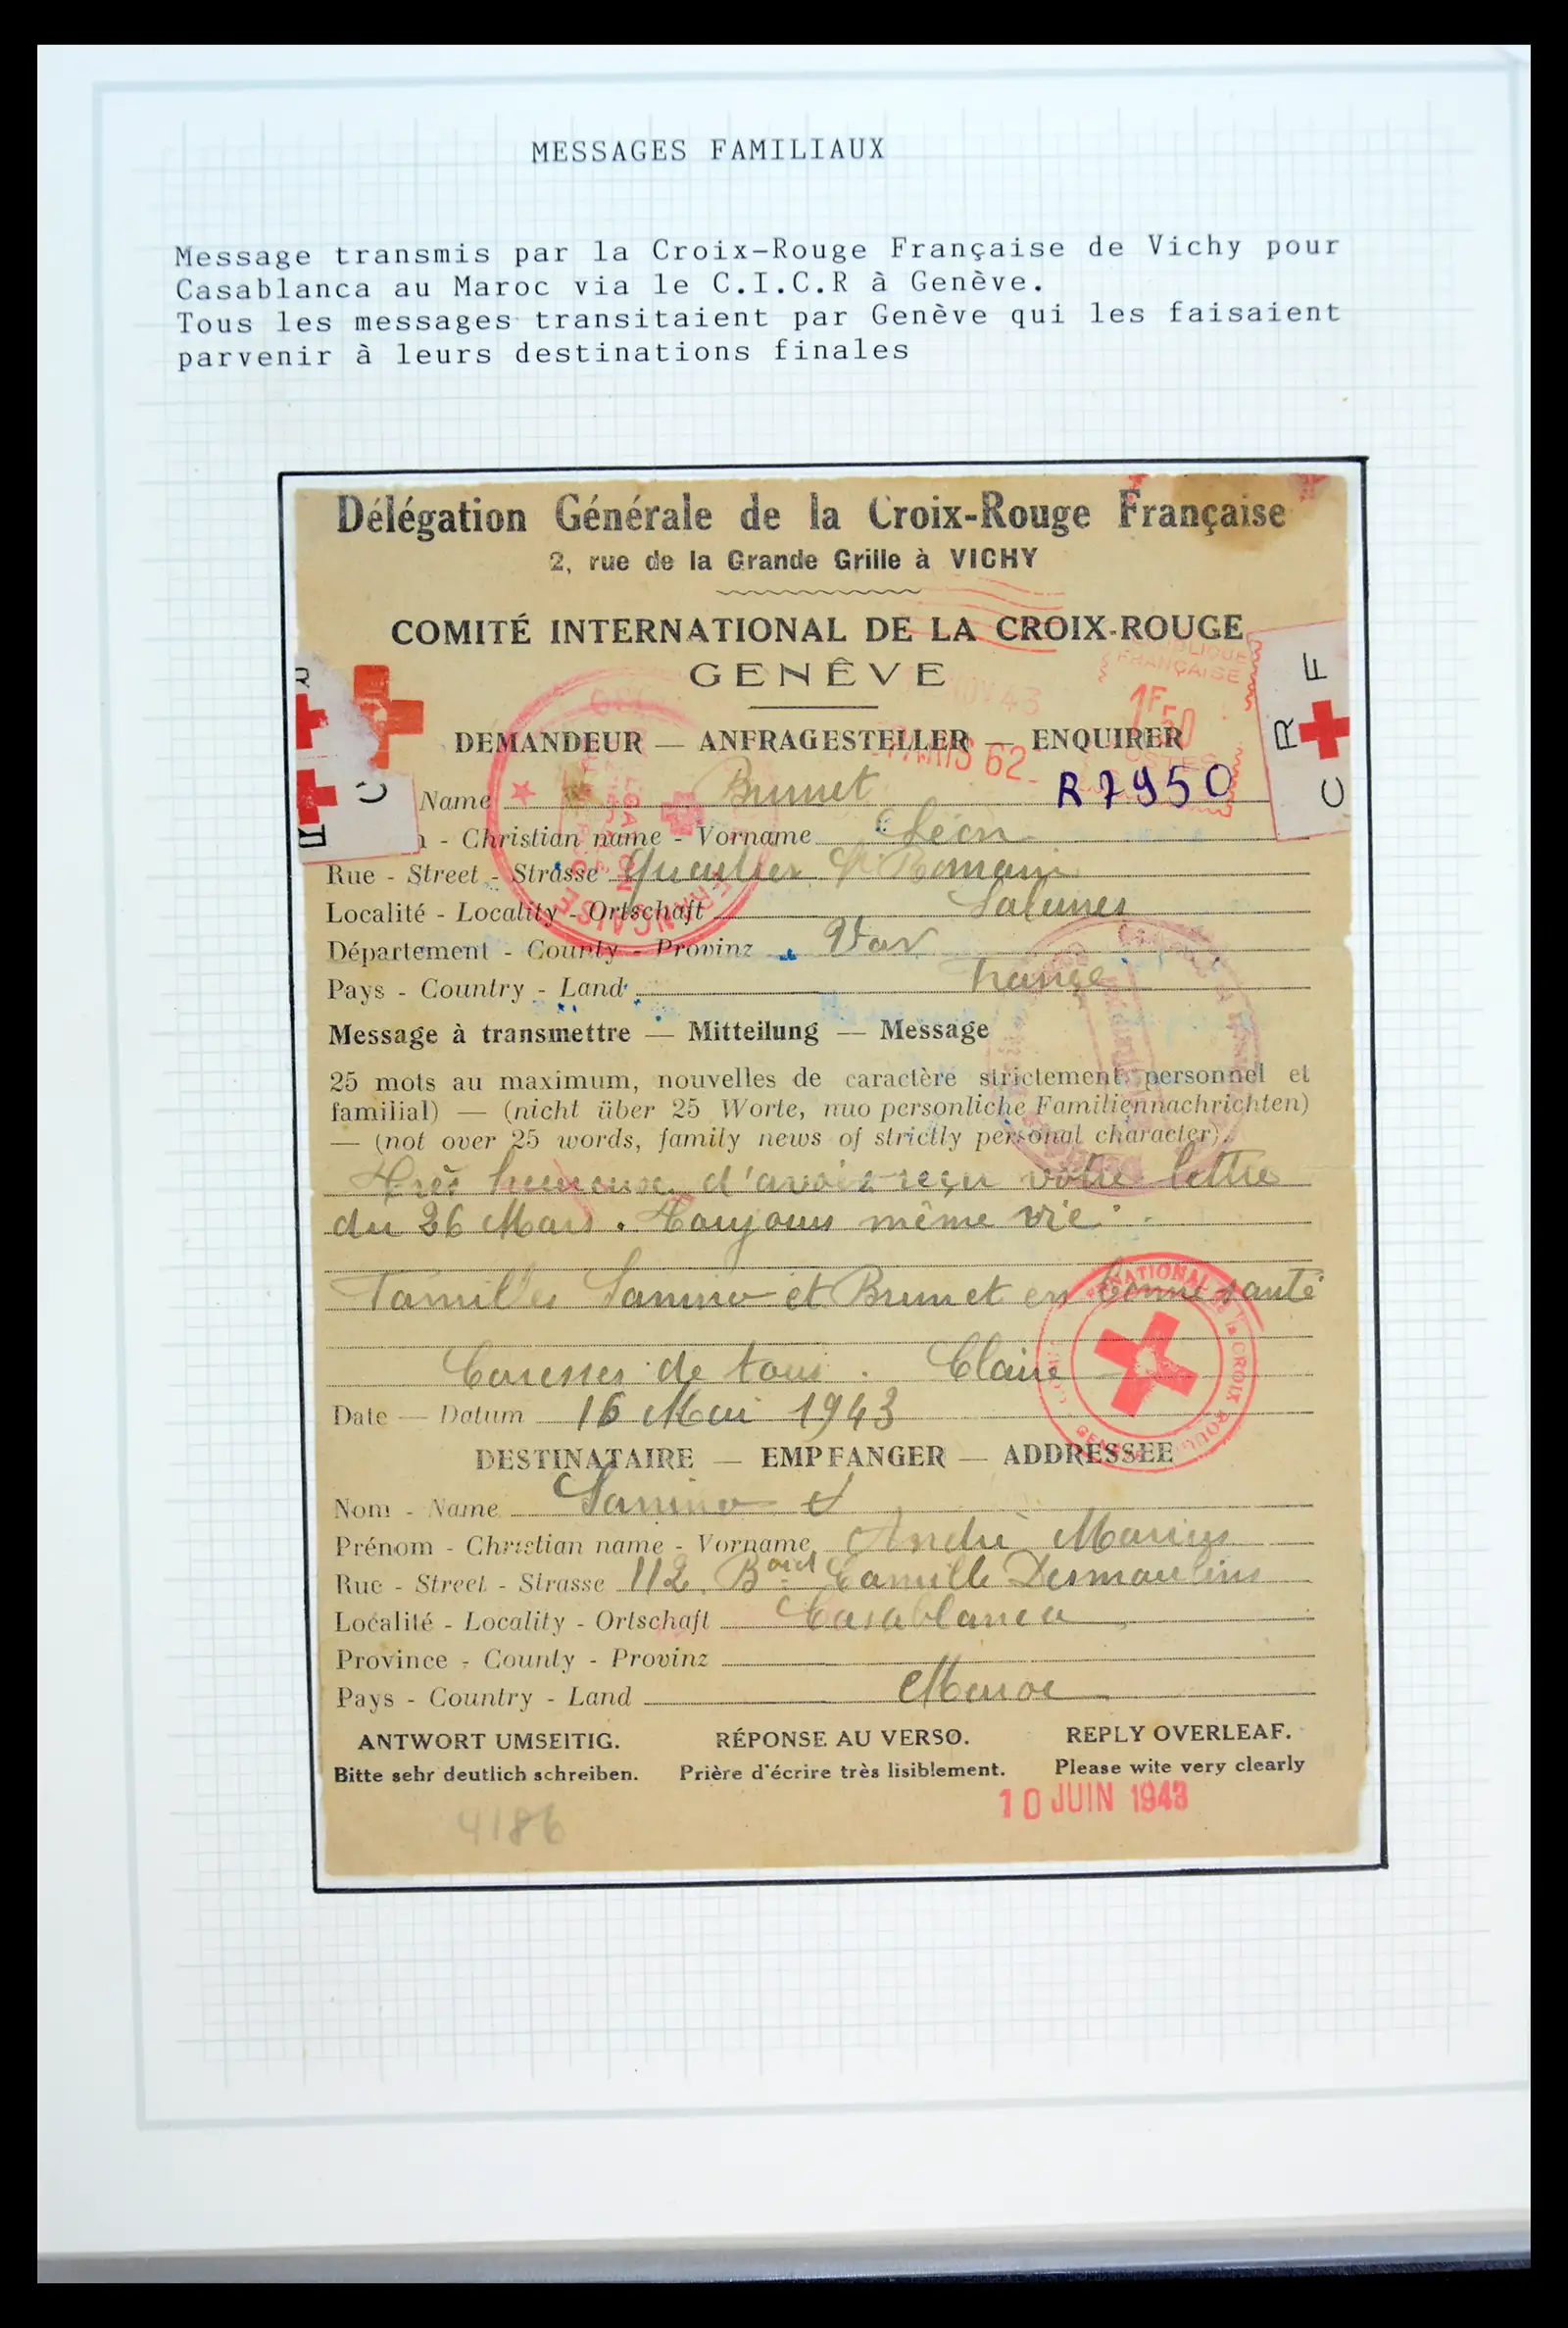 MESSAGES FAMILIAUX
Message transmis par la Croix-Rouge Française de Vichy pour
Casablanca au Maroc via le C.I.C.R à Genève.
Tous les messages transitaient par Genève qui les faisaient
parvenir à leurs destinations finales
Délégation Générale de la Croix-Rouge Française
2, rue de la Grande Grille à VICHY
COMITÉ INTERNATIONAL DE LA CROIX-ROUGE
GENÊVE
RÉPUBLIQUE
FRANÇAISE
1F50
POSTES
PARIS 62
C R F
DEMANDEUR — ANFRAGESTELLER — ENQUIRER
Name Brunet R7950
- Christian name - Vorname Léon
Rue - Street - Strasse Quartier St Romain
Localité - Locality - Ortschaft Salernes
Département - County - Provinz Var
Pays - Country - Land France
Message à transmettre — Mitteilung — Message
25 mots au maximum, nouvelles de caractère strictement personnel et
familial) — (nicht über 25 Worte, nuo personliche Familiennachrichten)
— (not over 25 words, family news of strictly personal character).
Très heureux d'avoir reçu votre lettre
du 26 Mars. Toujours même vie.
Familles et Brunet en bonne santé
Caresses de tous. Claire
Date — Datum 16 Mai 1943
DESTINATAIRE — EMPFANGER — ADDRESSEE
Nom - Name
Prénom - Christian name - Vorname André Marius
Rue - Street - Strasse 112 Bard Camille Desmoulins
Localité - Locality - Ortschaft Casablanca
Province - County - Provinz
Pays - Country - Land Maroc
ANTWORT UMSEITIG. RÉPONSE AU VERSO. REPLY OVERLEAF.
Bitte sehr deutlich schreiben. Prière d'écrire très lisiblement. Please wite very clearly
10 JUIN 1943
4186